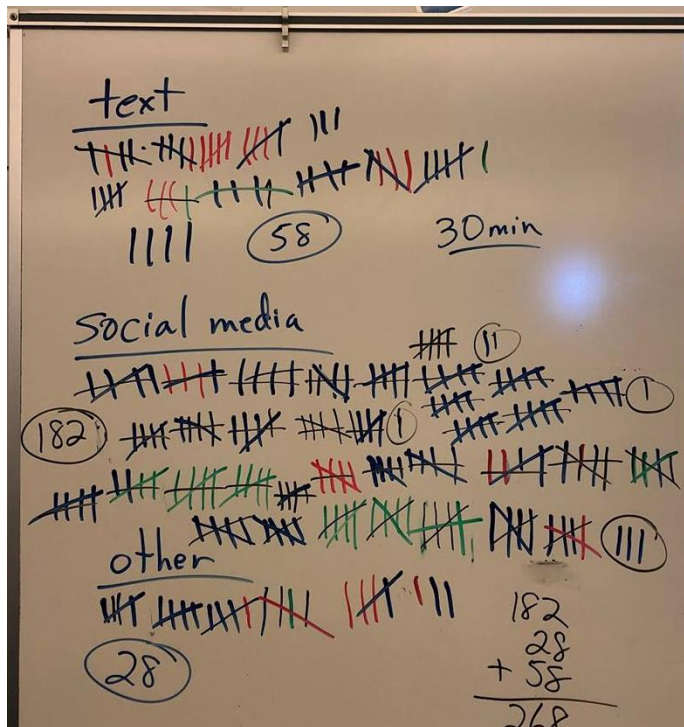 text
58
30min
social media
182
other
28
182
28
+ 58
268